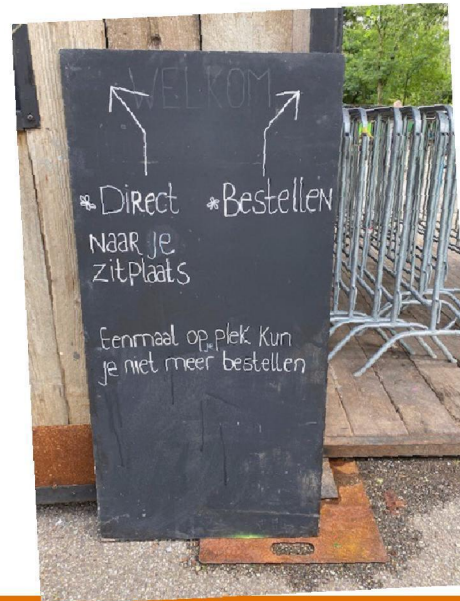 WELKOM
* Direct
naar je
zitplaats
* Bestellen
Eenmaal op plek kun
je niet meer bestellen